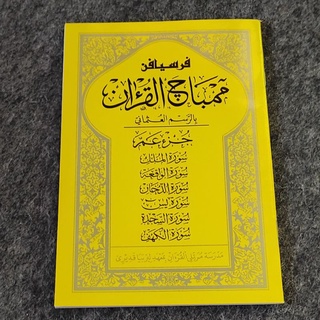 فرسيافن
ممباچ القرءان
بالرسم العثماني
جزء عم
سورة الملك
سورة الواقعة
سورة الدخان
سورة يس
سورة السجدة
سورة الكهف